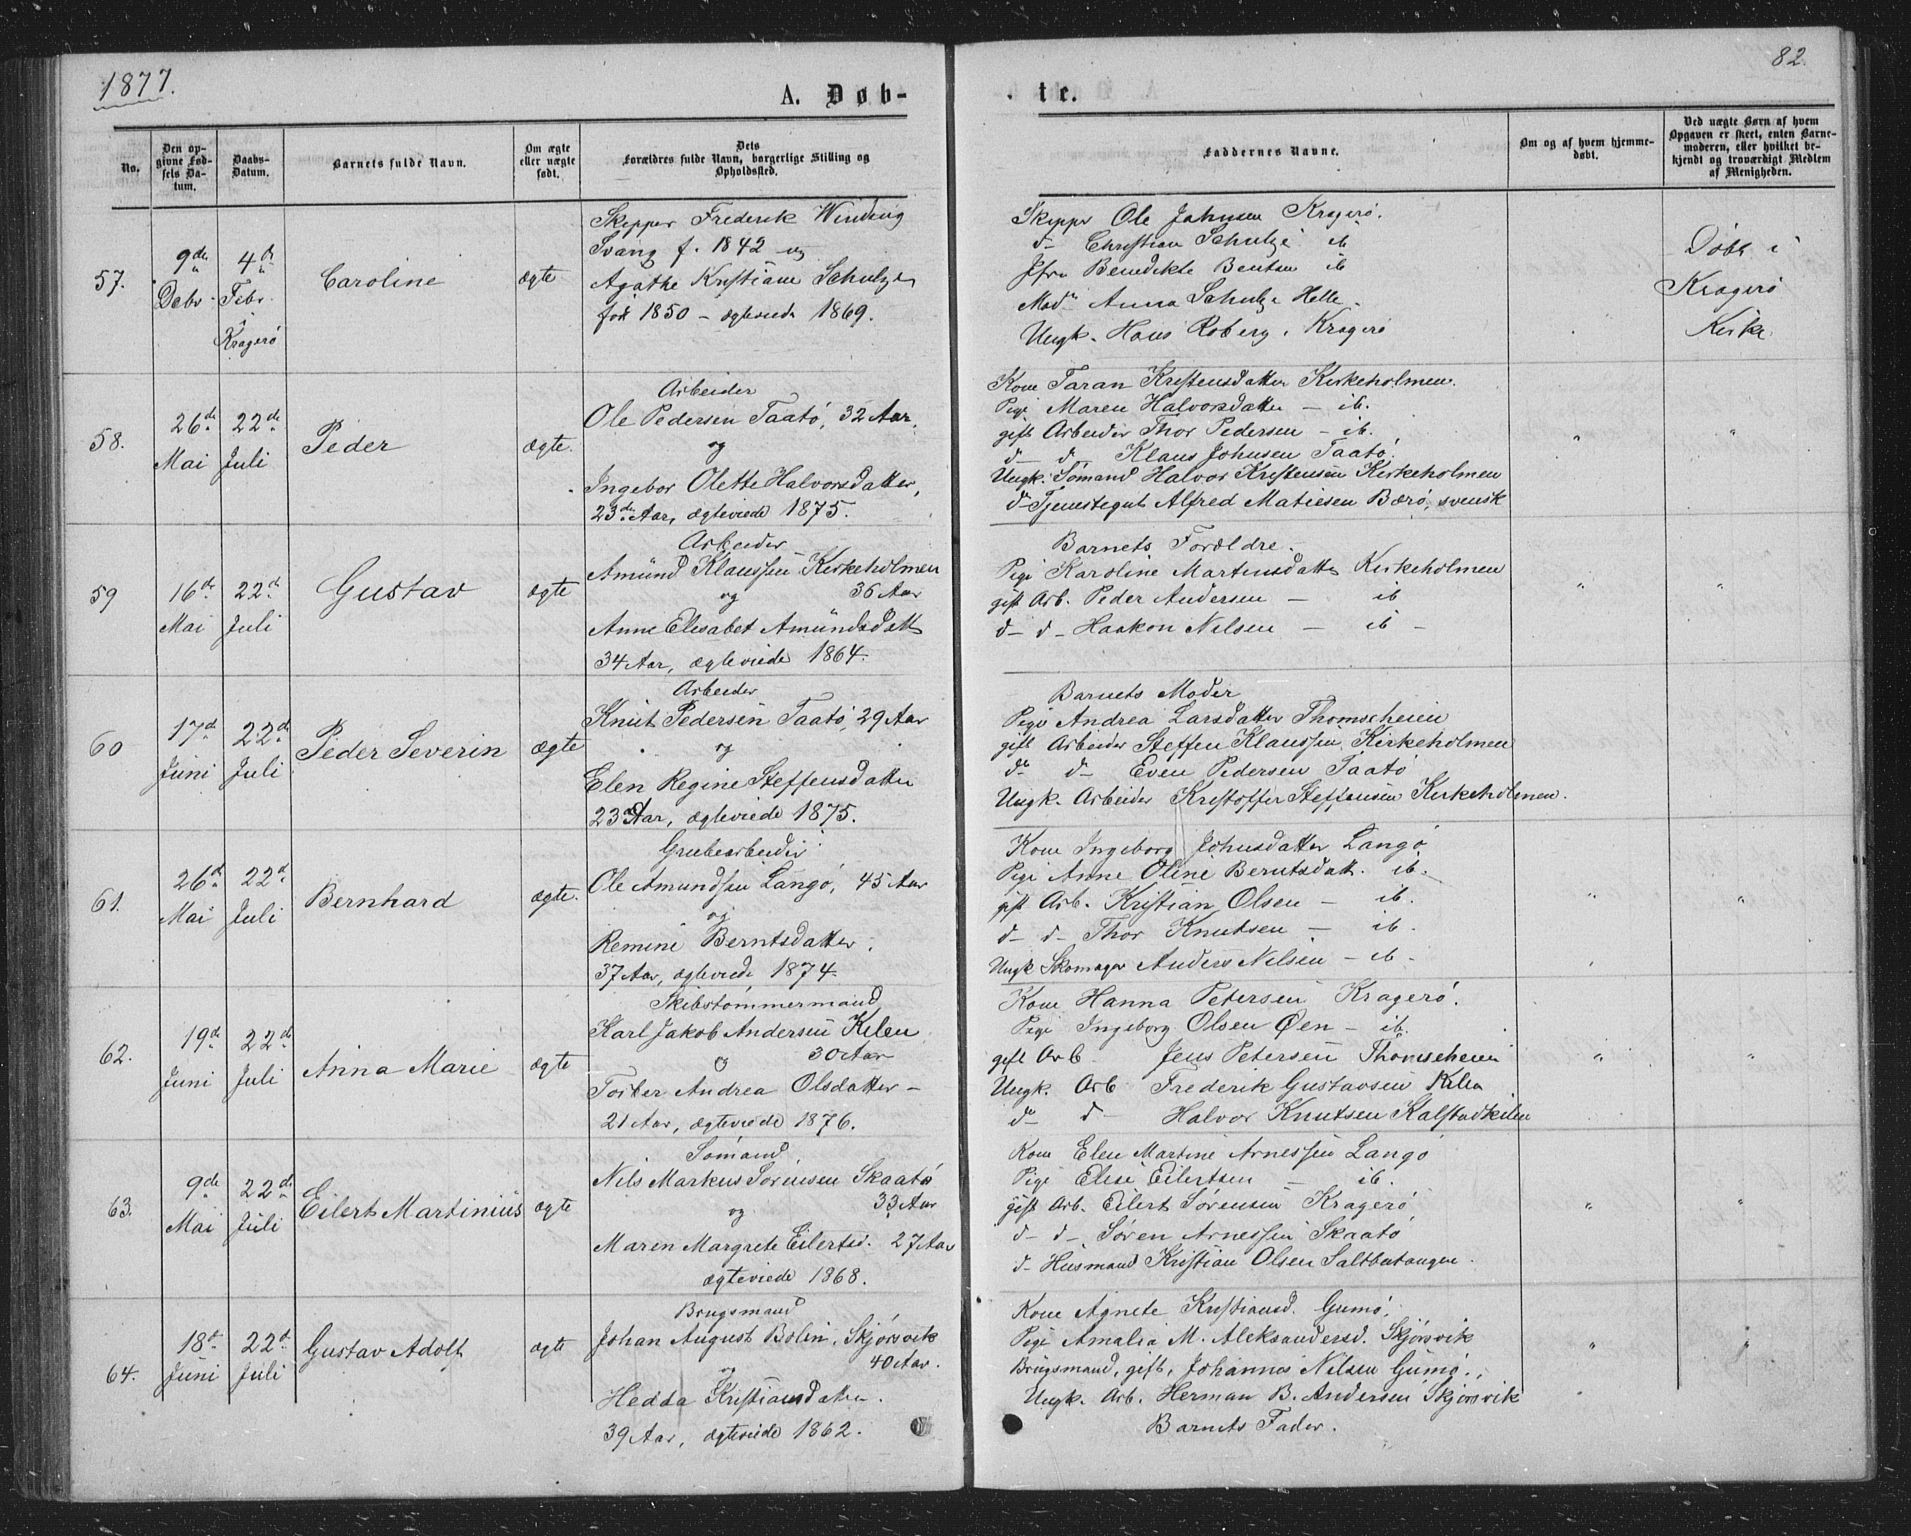 1877.
82.
A. Døb-
te.
No.
Den opgivne Fødsels Datum.
Daabs-Datum.
Barnets fulde Navn.
Om ægte eller uægte født.
Dets Forældres fulde Navn, borgerlige Stilling og Opholdssted.
Faddernes Navne.
Om og af hvem hjemmedøbt.
Ved uægte Børn af hvem Opgaven er skeet, enten Barnemoderen, eller hvilket bekjendt og troværdigt Medlem af Menigheden.
57.
9de Debr.
4de Febr. i Kragerø
Caroline
ægte
Skipper Frederik Winding
Svang f. 1842 og
Agathe Kristiane Schultze
fød 1850 – ægteviede 1869.
Skipper Ole Johnsen Kragerø.
d– Christian Schultze ib
Jfr. Benedikte Bentsen ib
Mad. Anna Schultze Helle.
Ungk. Hans Roberg, Kragerø
Døbt i
Kragerø
Kirke
58.
26de Mai
22de Juli
Peder
ægte.
Arbeider
Ole Pedersen Taatø, 32 Aar
og
Ingebor Olette Halvorsdatter,
23 Aar, ægteviede 1875.
Kone Taran Kristensdatter Kirkeholmen.
Pige Maren Halvorsdatter – ib.
gift Arbeider Thor Pedersen – ib.
d– d– Klaus Johnsen Taatø.
Ungk. Sømand Halvor Kristensen Kirkeholmen
d– Tjenestegut Alfred Matiesen Bærø, svensk
" "
59
16de Mai
22de Juli
Gustav
ægte
Arbeider
Amund Klaussen Kirkeholmen
og 36 Aar
Anne Elisabet Amundsdatt
34 Aar, ægteviede 1864.
Barnets Forældre.
Pige Karoline Martinsdatter Kirkeholmen
gift Arb. Peder Andersen – ib
d– d– Haakon Nilsen – ib –
" "
60
17de Juni
22de Juli
Peder Severin
ægte
Arbeider
Knut Pedersen Taatø, 29 Aar
og
Elen Regine Steffensdatter
23 Aar, ægteviede 1875.
Barnets Moder
Pige Andrea Larsdatter Thomseheien
gift Arbeider Steffen Klaussen, Kirkeholmen
d– d– Even Pedersen Taatø
Ungk. Arbeider Kristoffer Steffensen Kirkeholmen.
61.
26de Mai
22de Juli
Bernhard
ægte.
Grubearbeider
Ole Amundsen Langø, 45 Aar
og
Remine Berntsdatter.
37 Aar, ægteviede 1874.
Kone Ingeborg Johnsdatter Langø
Pige Anne Oline Berntsdatt. ib.
gift Arb. Kristian Olsen – ib.
d– d– Thor Knutsen – ib.
Ungk Skomager Anders Nilsen – ib –
" "
62.
19de Juni
22de Juli
Anna Marie
ægte
Skibstømmermand
Karl Jakob Andersen Kilen
og 30 Aar
Andrea Olsdatter –
21 Aar, ægteviede 1876.
Kone Hanna Petersen Kragerø.
Pige Ingeborg Olsen Øen – ib.
gift Arb – Jens Petersen Thomseheien
Ungk. Arb Frederik Gustavsen Kilen
d– d– Halvor Knutsen Kalstadkilen
" "
63.
9de Mai
22de Juli
Eilert Martinius
ægte
Sømand
Nils Markus Sørensen Skaatø
og 33 Aar
Maren Margrete Eilertsd. 27 Aar
ægteviede 1868.
Kone Elen Martine Arnessen Langø
Pige Elise Eilertsen – ib.
gift Arb. Eilert Sørensen Kragerø
d– d– Søren Arnessen Skaatø
d– Husmand Kristian Olsen Saltbutangen.
" "
64.
18de Juni
22de Juli
Gustav Adolf
ægte
Brugsmand
Johan August Bolin, Skjørsvik
og 40 Aar.
Hedda Kristiansdatter.
39 Aar, ægteviede 1862.
Kone Agnete Kristiansd. Gumø.
Pige Amalia M. Aleksandersd. Skjørsvik
Brugsmand, gift, Johannes Nilsen Gumø.
Ungk. Arb. Herman B. Andersen Skjørsvik
Barnets Fader.
" "